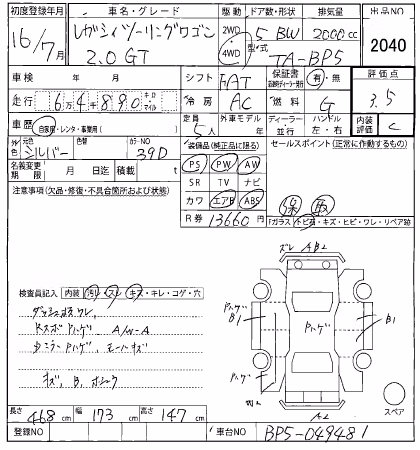 初度登録年月 車名・グレード 駆動 ドア数・形状 排気量 出品NO
16/7月 レガシィツーリングワゴン 2WD 5 BW 2000cc 2040
2.0GT 4WD 型式 TA-BP5
車検 年 月 シフト FAT 保証書 有・無 評価点
走行 6万4千890 キロ マイル 冷房 AC 燃料 G 3.5
車歴 自家用・レンタ・事業用( ) 定員 5人 外車モデル 年 ディーラー 並行 ハンドル 左・右 内装評価 C
外色 元色 シルバー 色替 カラーNO 39D 装備品(純正品に限る) セールスポイント(正常に作動するもの)
名義変更期限 月 日迄 積載 t PS PW AW
SR TV ナビ
注意事項(欠品・修復・不具合箇所および状態) カワ エアB ABS 保 取
R券 13660円 ガラス トビ石・キズ・ヒビ・ワレ・リペア跡
ズレ AB2
検査員記入 内装 汚レ・スレ・キズ・キレ・コゲ・穴
ダッシュはるワレ、
Rスポ Pハゲ A/W-A
Pハゲ B1 Pハゲ B1
ミラーPハゲ、
キズ、B、
Pハゲ
A2
スペア
長さ 468cm 幅 173cm 高さ 147cm
登録NO 車台NO BP5-049481